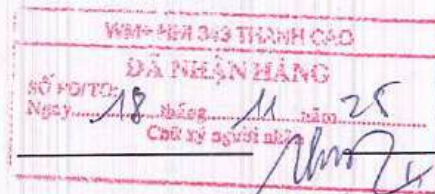 WM+ HNI 343 THANH CAO
ĐÃ NHẬN HÀNG
SỐ PO/TO:
Ngày 18 tháng 11 năm 25
Chữ ký người nhận